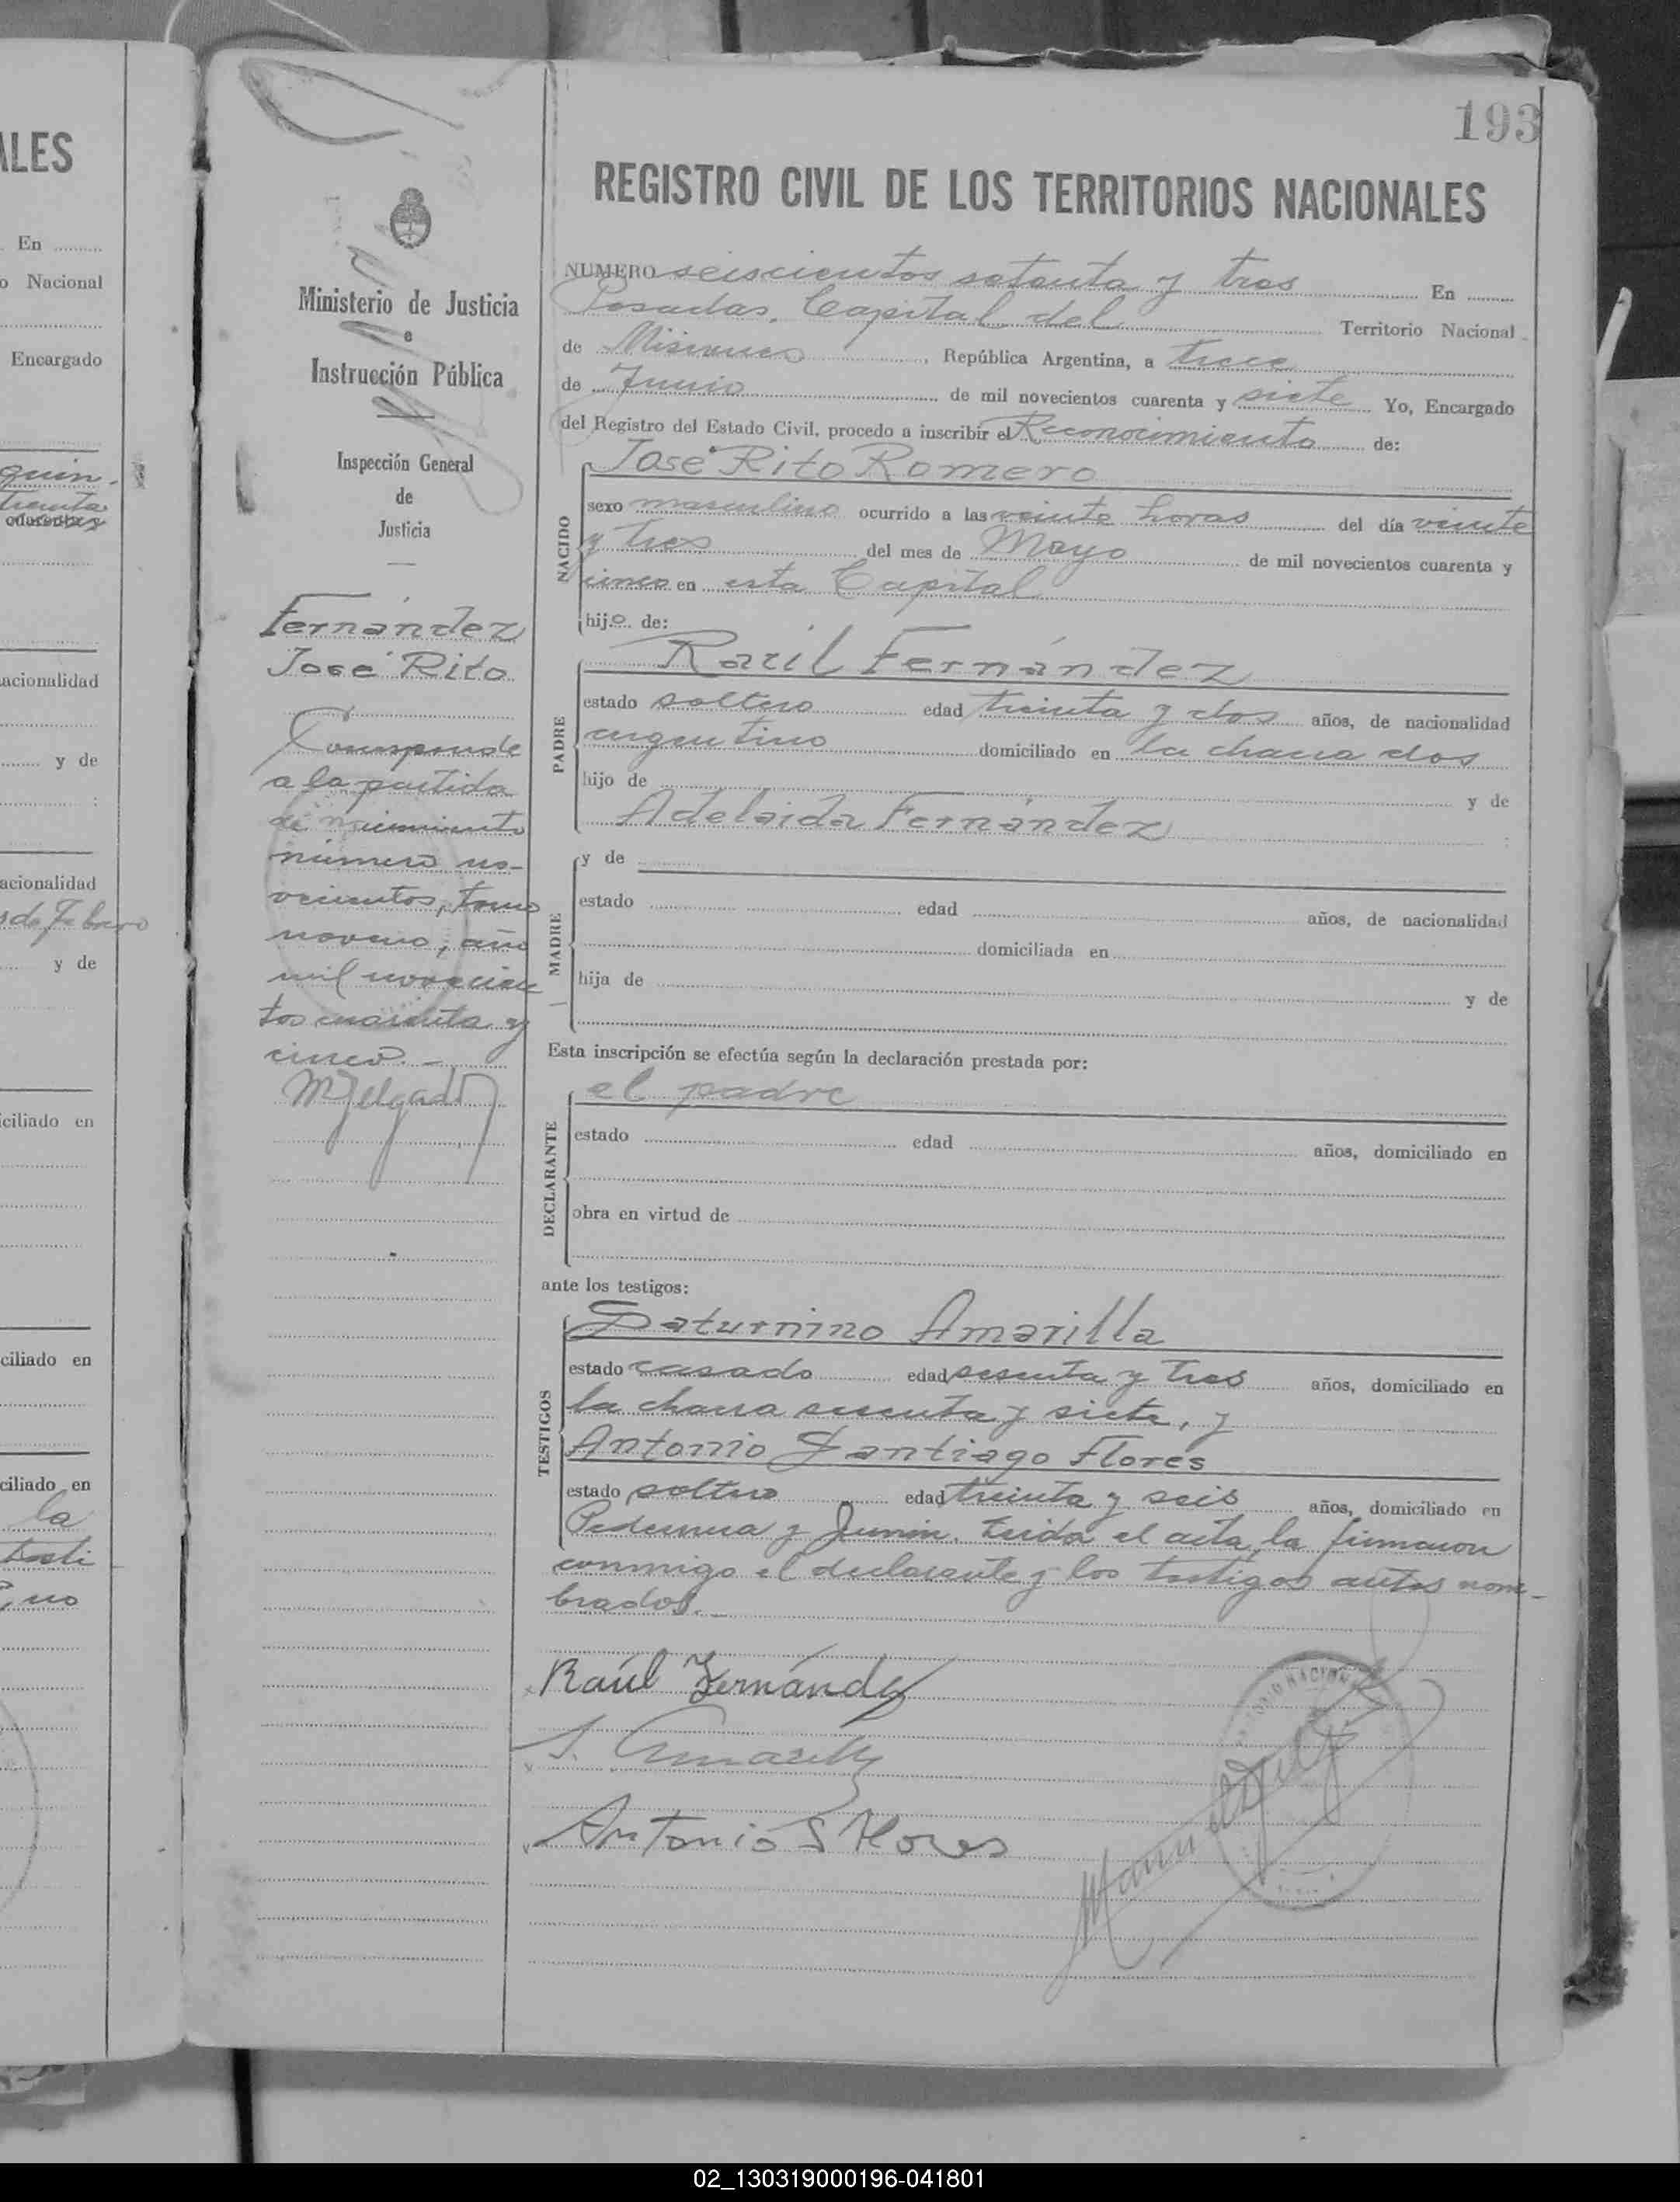 ALES
En
o Nacional
Encargado
quin.
treinta
acionalidad
y de
acionalidad
de Febrero
y de
iciliado en
ciliado en
ciliado en
la
testi
, no
193
REGISTRO CIVIL DE LOS TERRITORIOS NACIONALES
Ministerio de Justicia
e
Instrucción Pública
Inspección General
de
Justicia
Fernández
José Rito
Corresponde
a la partida
de nacimiento
número no-
vecientos, tomo
noveno, año
mil novecien
tos cuarenta y
cinco.-
MDelgado
NUMERO seiscientos setenta y tres En
Posadas, Capital del Territorio Nacional
de Misiones, República Argentina, a trece
de Junio de mil novecientos cuarenta y siete Yo, Encargado
del Registro del Estado Civil, procedo a inscribir el Reconocimiento de:
José Rito Romero
NACIDO
sexo masculino ocurrido a las veinte horas del día veinte
y tres del mes de Mayo de mil novecientos cuarenta y
cinco en esta Capital
hijo de:
Raúl Fernández
PADRE
estado soltero edad treinta y dos años, de nacionalidad
argentino domiciliado en la chacra dos
hijo de y de
Adelaida Fernández
y de
MADRE
estado edad años, de nacionalidad
domiciliada en
hija de y de
Esta inscripción se efectúa según la declaración prestada por:
el padre
DECLARANTE
estado edad años, domiciliado en
obra en virtud de
ante los testigos:
Saturnino Amarilla
TESTIGOS
estado casado edad sesenta y tres años, domiciliado en
la chacra sesenta y siete, y
Antonio Santiago Flores
estado soltero edad treinta y seis años, domiciliado en
Pedernera y Junín. Leída el acta, la firmaron
conmigo el declarante y los testigos antes nom-
brados.-
Raúl Fernández
S. Amarilla
Antonio S Flores
Manuel Delgado
02_130319000196-041801